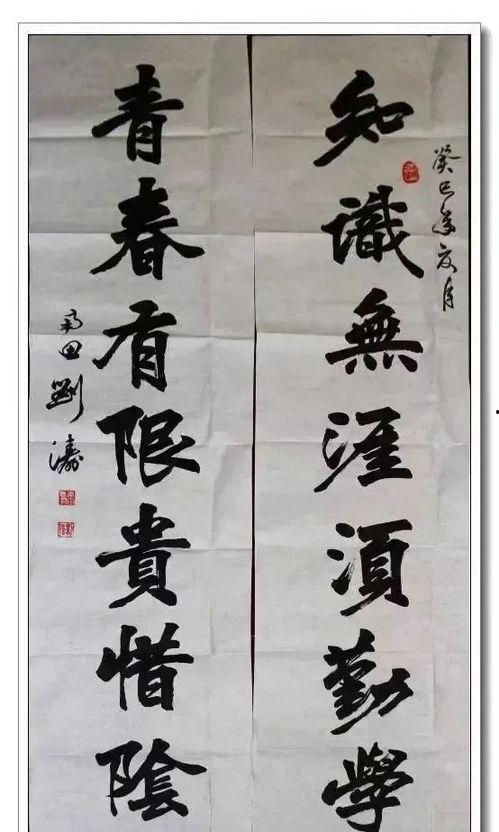 癸巳年夏月
知識無涯須勤學
青春有限貴惜陰
南田劉濤